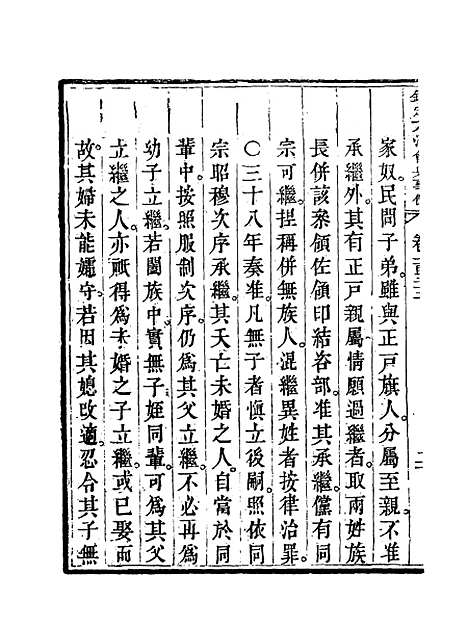 家奴民間子弟。雖與正戶旗人。分屬至親。不准
承繼外。其有正戶親屬情願過繼者。取兩姓族
長併該叅領佐領印結咨部。准其承繼。儻有同
宗可繼。捏稱併無族人。混繼異姓者按律治罪。
○三十八年奏准。凡無子者愼立後嗣。照依同
宗昭穆次序承繼。其夭亡未婚之人。自當於同
輩中。按照服制次序。仍爲其父立繼。不必再爲
幼子立繼。若闔族中實無子姪同輩。可爲其父
立繼之人。亦祇得爲未婚之子立繼。或已娶而
故。其婦未能孀守。若因其媳改適。忍令其子無